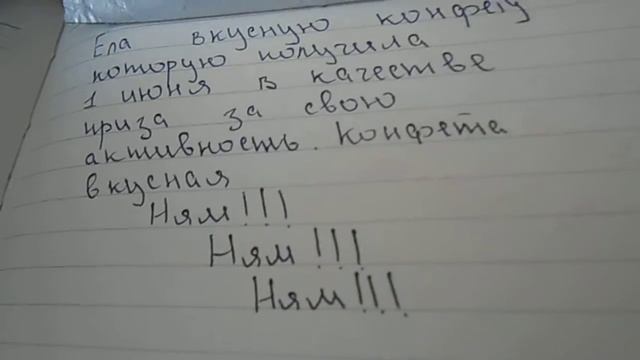 Ела вкусную конфету
которую получила
1 июня в качестве
приза за свою
активность. Конфета
вкусная
Ням!!!
Ням!!!
Ням!!!